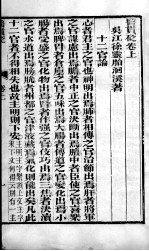 醫貫砭卷上
吳江徐靈胎洄溪著
十二官論
心者君主之官也神明出焉肺者相傅之官治節出焉肝者將軍
之官謀慮出焉膽者中正之官決斷出焉膻中者臣使之官喜樂
出焉脾胃者倉廩之官五味出焉大腸者傳道之官變化出焉小
腸者受盛之官化物出焉腎者作強之官伎巧出焉三焦者決瀆
之官水道出焉膀胱者州都之官津液藏焉氣化則能出矣凡此
十二官者不得相失也故主明則下安